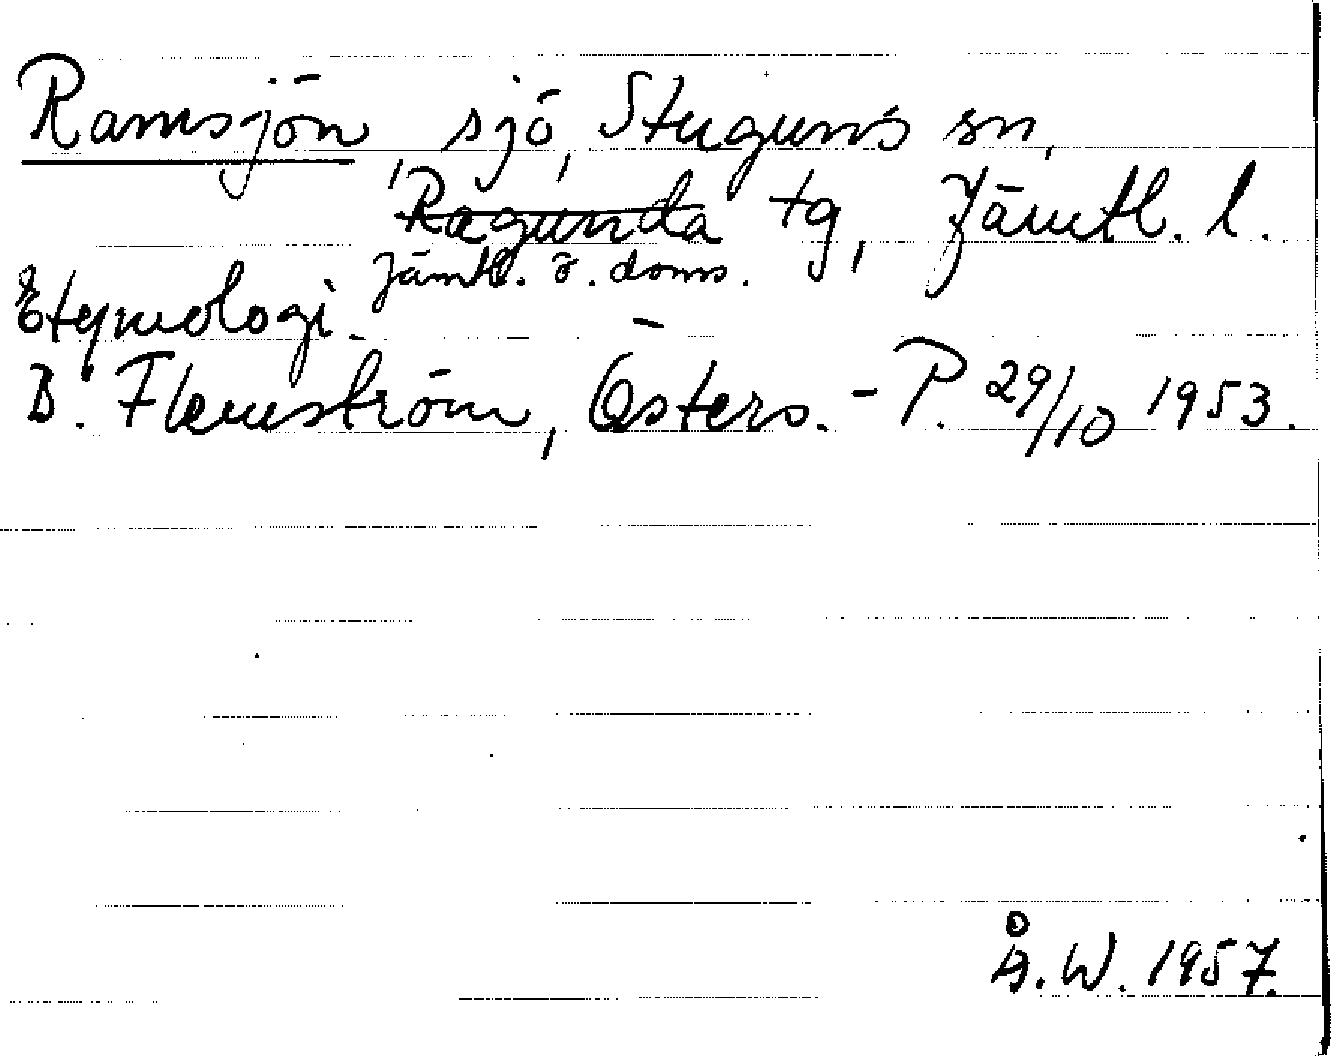 Ramsjön, sjö, Stuguns sn,
Ragunda tg, Jämtl. l.
Jämtl. ö. doms.
Etymologi.
B. Flemström, Östers. - P. 29/10 1953.
Å. W. 1957.